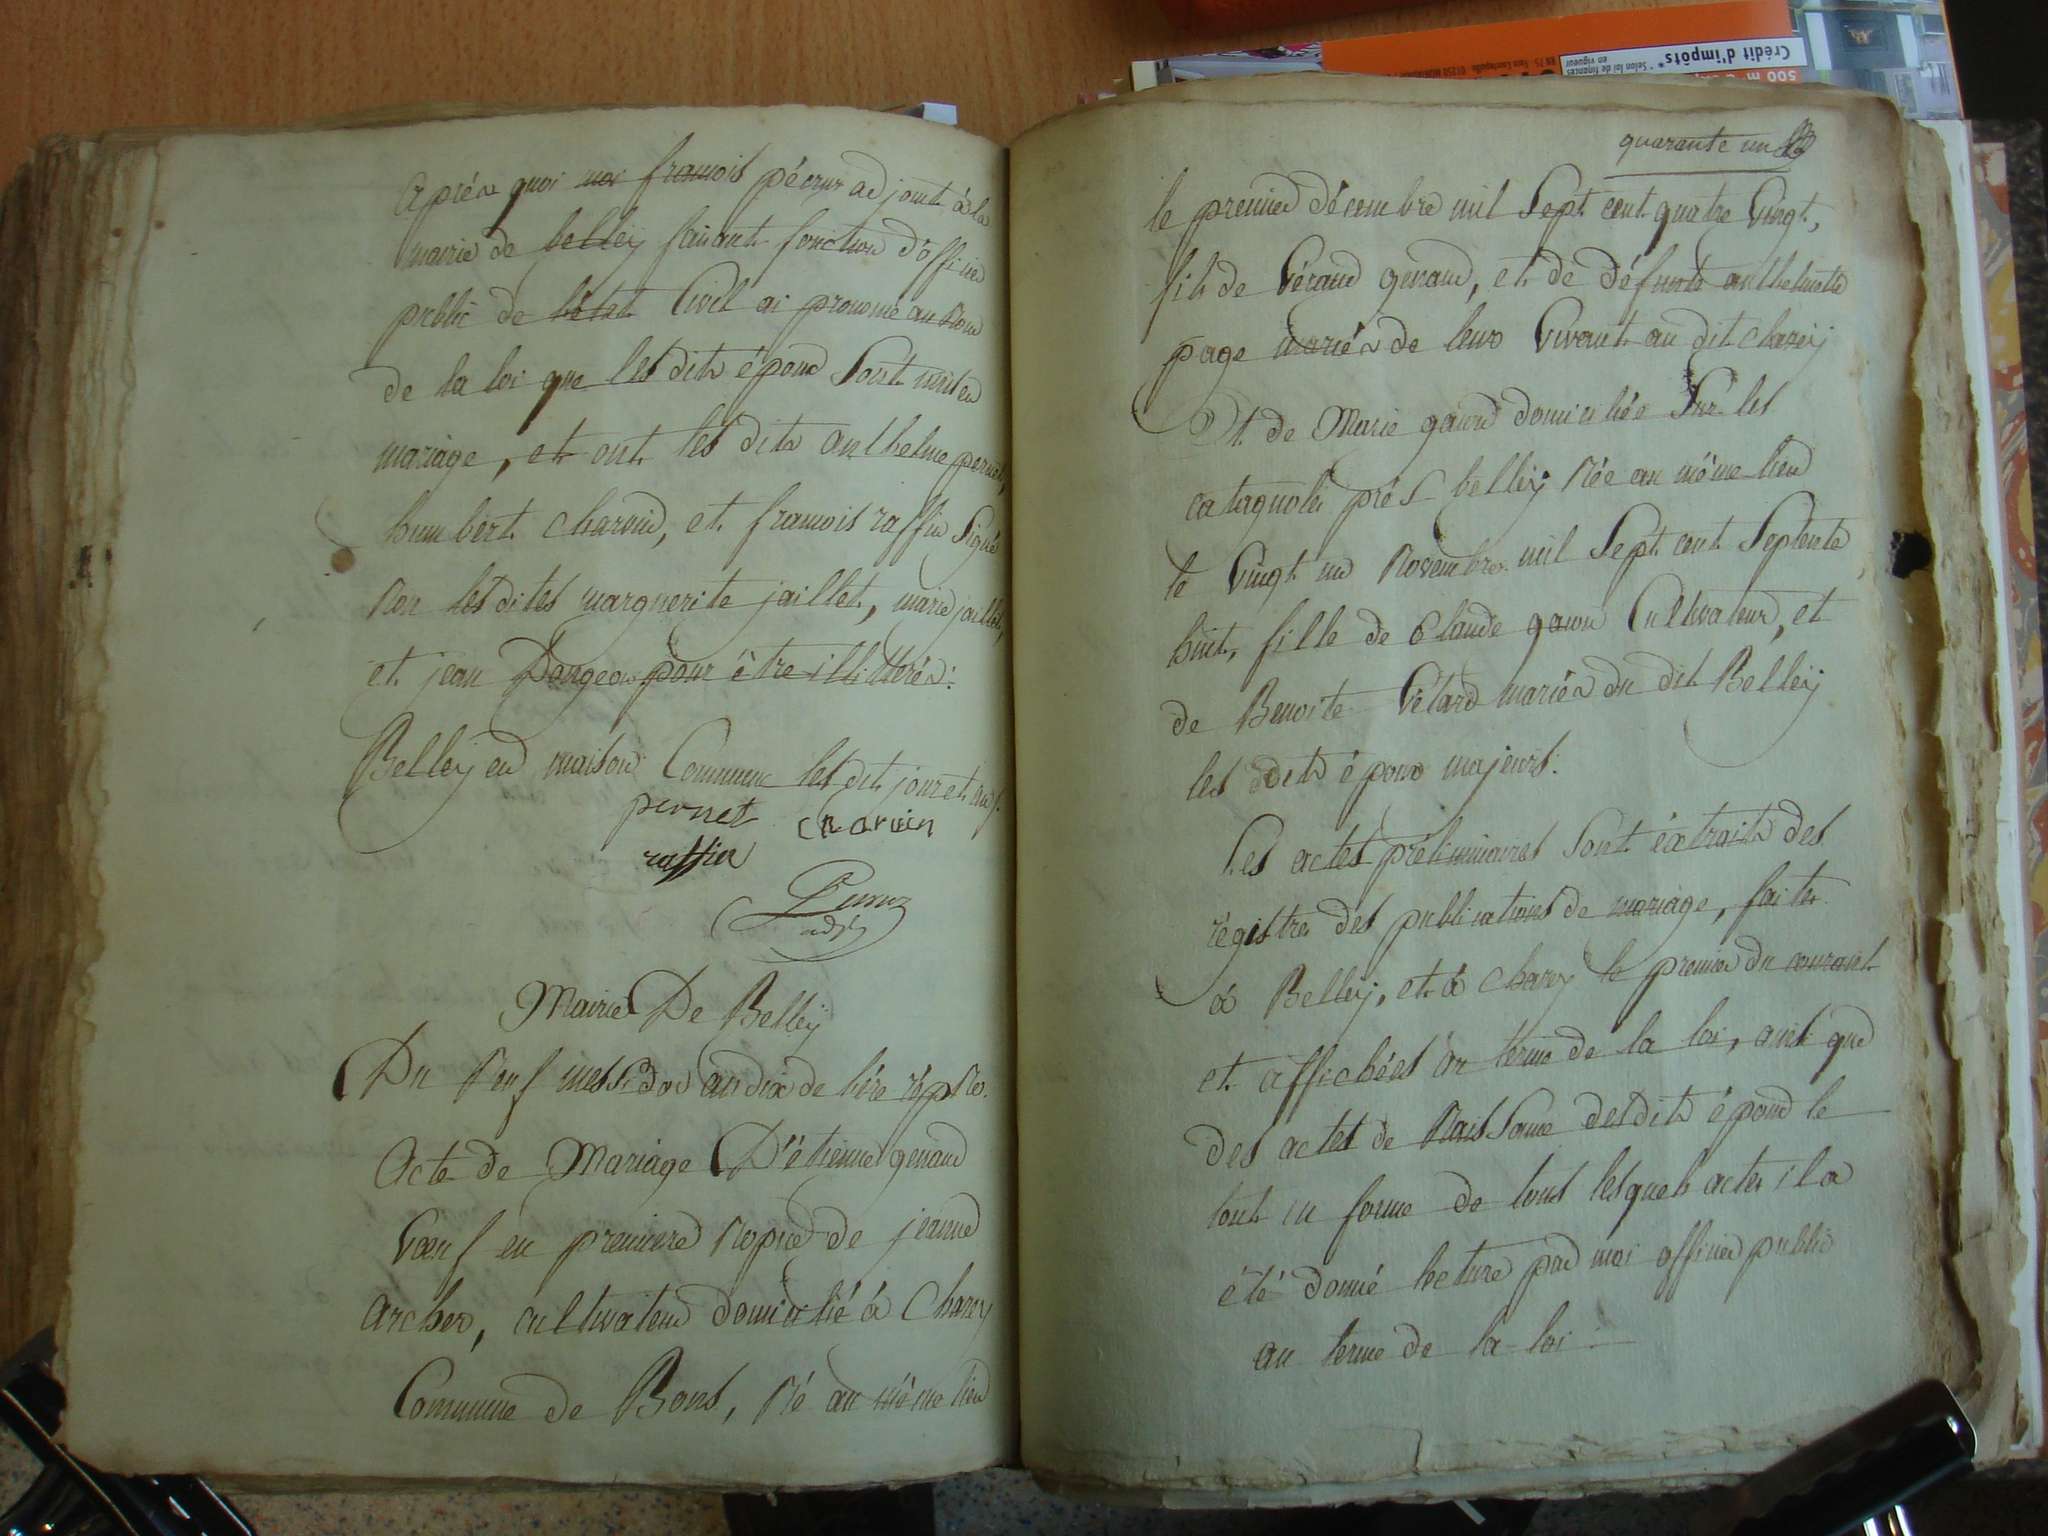 après quoi moi francois pécoux adjoint à la
mairie de belley faisant fonction d'officier
public de l'état Civil ai prononcé au Nom
de la loi que les dits époux Sont unis en
mariage, et ont les dits anthelme pernet,
humbert charvin, et francois raffin Signé
Non les dites marguerite jaillet, marie jaillet,
et jean Dougeou pour être illittérés:
Belley en maison Commune les dit jour et an.
pernet charvin
raffin
adjt
Mairie De Belley
Du Neuf messidor an dix de l'ère rép.ne
Acte de Mariage D'étienne genand
Vœuf en premiere Nopce de jeanne
archer, cultivateur domicilié à Charey
Commune de Bons, Né au même lieu
quarante un
le premier décembre mil Sept cent quatre Vingt,
fils de genand, et de défunte anthelmette
page mariés de leur Vivant au dit charey
Et de Marie domiciliée Sur les
catagnoles près belley Née au même lieu
le Vingt un Novembre mil Sept cent Septente
huit, fille de Claude Cultivateur, et
de Benoite Vétard mariés du dit Belley
les ddits époux majeurs:
Les actes préliminaires Sont éxtraits des
régistres des publications de mariage, faites
à Belley, et à Charey le premier du courant
et affichées au terme de la loi, ainsi que
des actes de Naissance desdits époux le
tout en forme de tous lesquels actes il a
été donné lecture par moi officier public
au terme de la loi :
Crédit d'impôts*
* Selon loi de finances
en vigueur